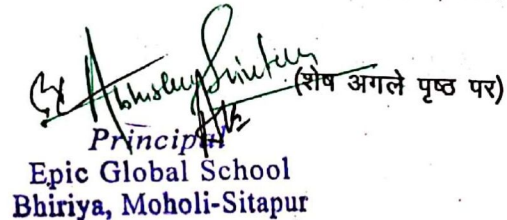 (शेष अगले पृष्ठ पर)
Principal
Epic Global School
Bhiriya, Moholi-Sitapur